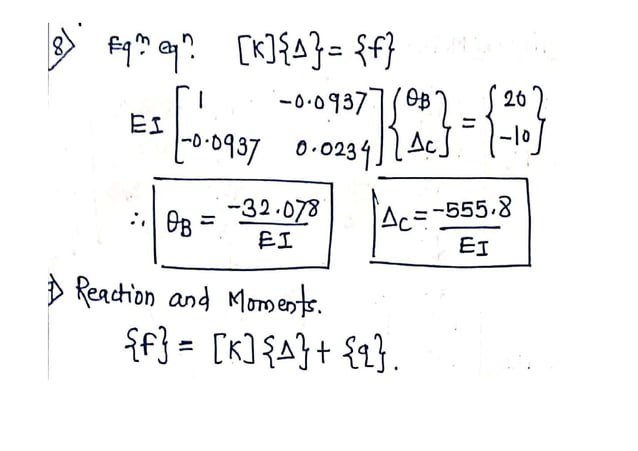 8) Eqⁿ eqⁿ. [K]{Δ} = {f}
EI [1 -0.0937; -0.0937 0.0234] {θB; Δc} = {20; -10}
∴ θB = -32.078/EI Δc = -555.8/EI
Reaction and Moments.
{f} = [K]{Δ} + {q}.